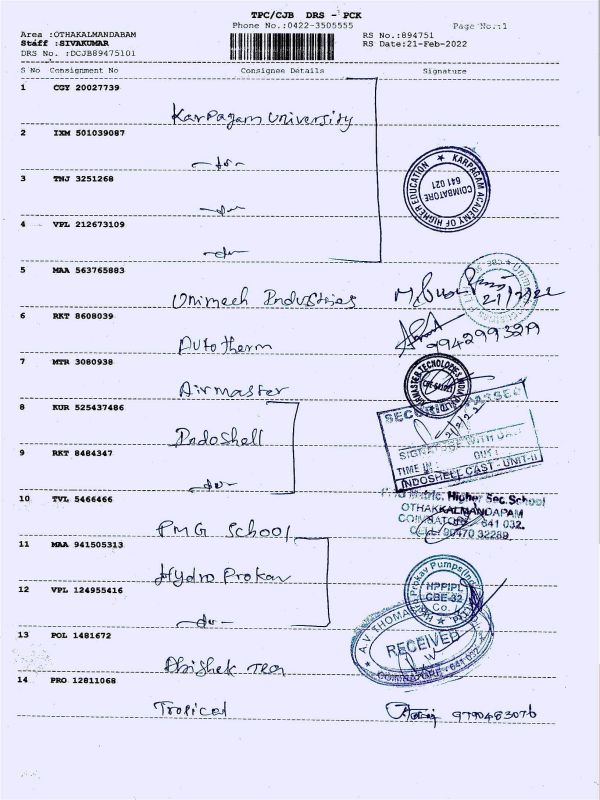 TPC/CJB DRS - PCK
Phone No.:0422-3505555
Page No.:1
Area :OTHAKALMANDABAM
Staff :SIVAKUMAR
DRS No. :DCJB89475101
RS No.:894751
RS Date:21-Feb-2022
S No Consignment No Consignee Details Signature
1 CGY 20027739
Karpagam University
2 IXM 501039087
-do-
3 TNJ 3251268
-do-
4 VPL 212673109
-do-
KARPAGAM ACADEMY OF HIGHER EDUCATION
COIMBATORE
641 021
5 MAA 563765883
Unimech Industries
6 RKT 8608039
Autotherm
7 MTR 3080938
Airmaster
8 KUR 525437486
Indoshell
9 RKT 8484347
-do-
SIGNATURE WITH DATE
TIME IN: OUT:
INDOSHELL CAST - UNIT-II
10 TVL 5466466
PMG School
Hr. Higher Sec. School
OTHAKKALMANDAPAM
COIMBATORE - 641 032.
11 MAA 941505313
Hydro Prokav
12 VPL 124955416
-do-
Hydro Prokav Pumps
HPPIPL
CBE-32
13 POL 1481672
Abishek Tex
A.V. THOMA
RECEIVED
COIMBATORE - 641 032
14 PRO 12811068
Tropical
9790483076